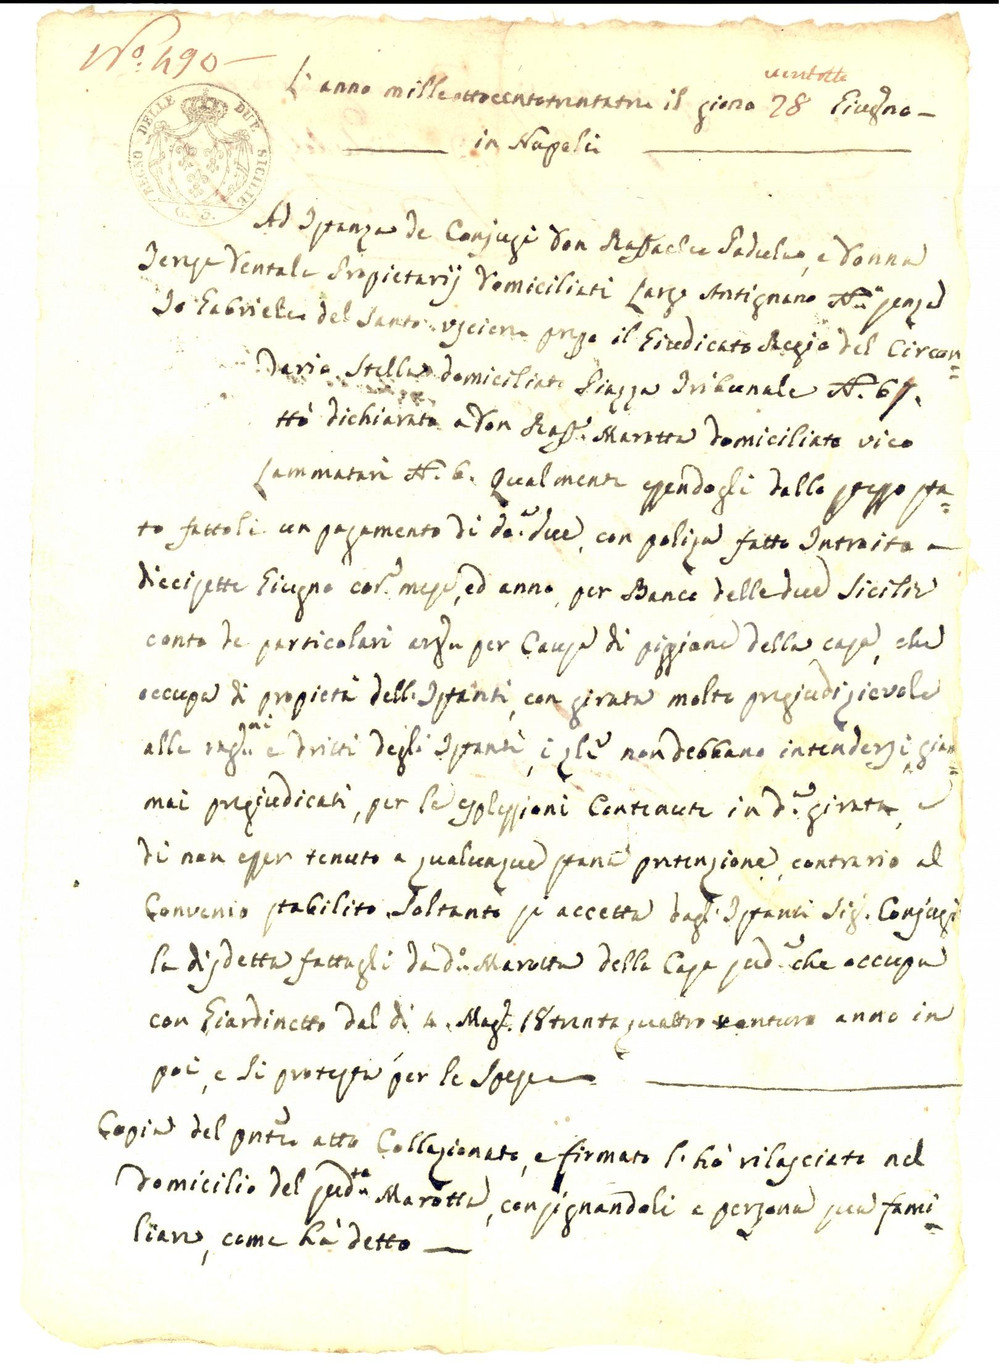 N.º 490
ventotto
L'anno milleottocentotrentatre il giorno 28 Giugno
in Napoli
REGNO DELLE DUE SICILIE
G. 6.
Ad Istanza de Conjugi Don Raffaele Padula, e Donna
Teresa Ventale Propietarij domiciliati Largo Antignano N.º senza
Io Gabriele del Santo usciere presso il Giudicato Regio del Circon=
dario Stella domiciliato Piazza Tribunale N. 67.
ttò dichiarato a Don Raff.e Marotta domiciliato vico
Lammatari N. 6. Qualmente essendogli dallo stesso sta=
to fattoli un pagamento di d.ti due, con polisa fatto Introito a
diecisette Giugno cor.e mese, ed anno, per Banco delle due Sicilie
conto de particolari per Causa di piggione della casa, che
occupa di propietà dell'Istanti, con girata molto pregiudizievole
alle ragioni e dritti degli Istanti, i q.li non debbano intendersi giam=
mai pregiudicati, per le esplessioni Contenute in d.a girata, e
di non esser tenuto a qualunque strana pretenzione, contrario al
Convenio stabilito. Soltanto si accetta dagl'Istanti Sig. Conjugi
la disdetta fattagli da d.o Marotta della Casa sud.a che occupa
con Giardinetto dal dì 4. Mag.o 18trentaquattro venturo anno in
poi, e si protesta per le Spese
Copia del pnte atto Collazionato, e firmato l'hò rilasciato nel
domicilio del sud.to Marotta, consignandoli a persona sua fami=
liare, come hà detto